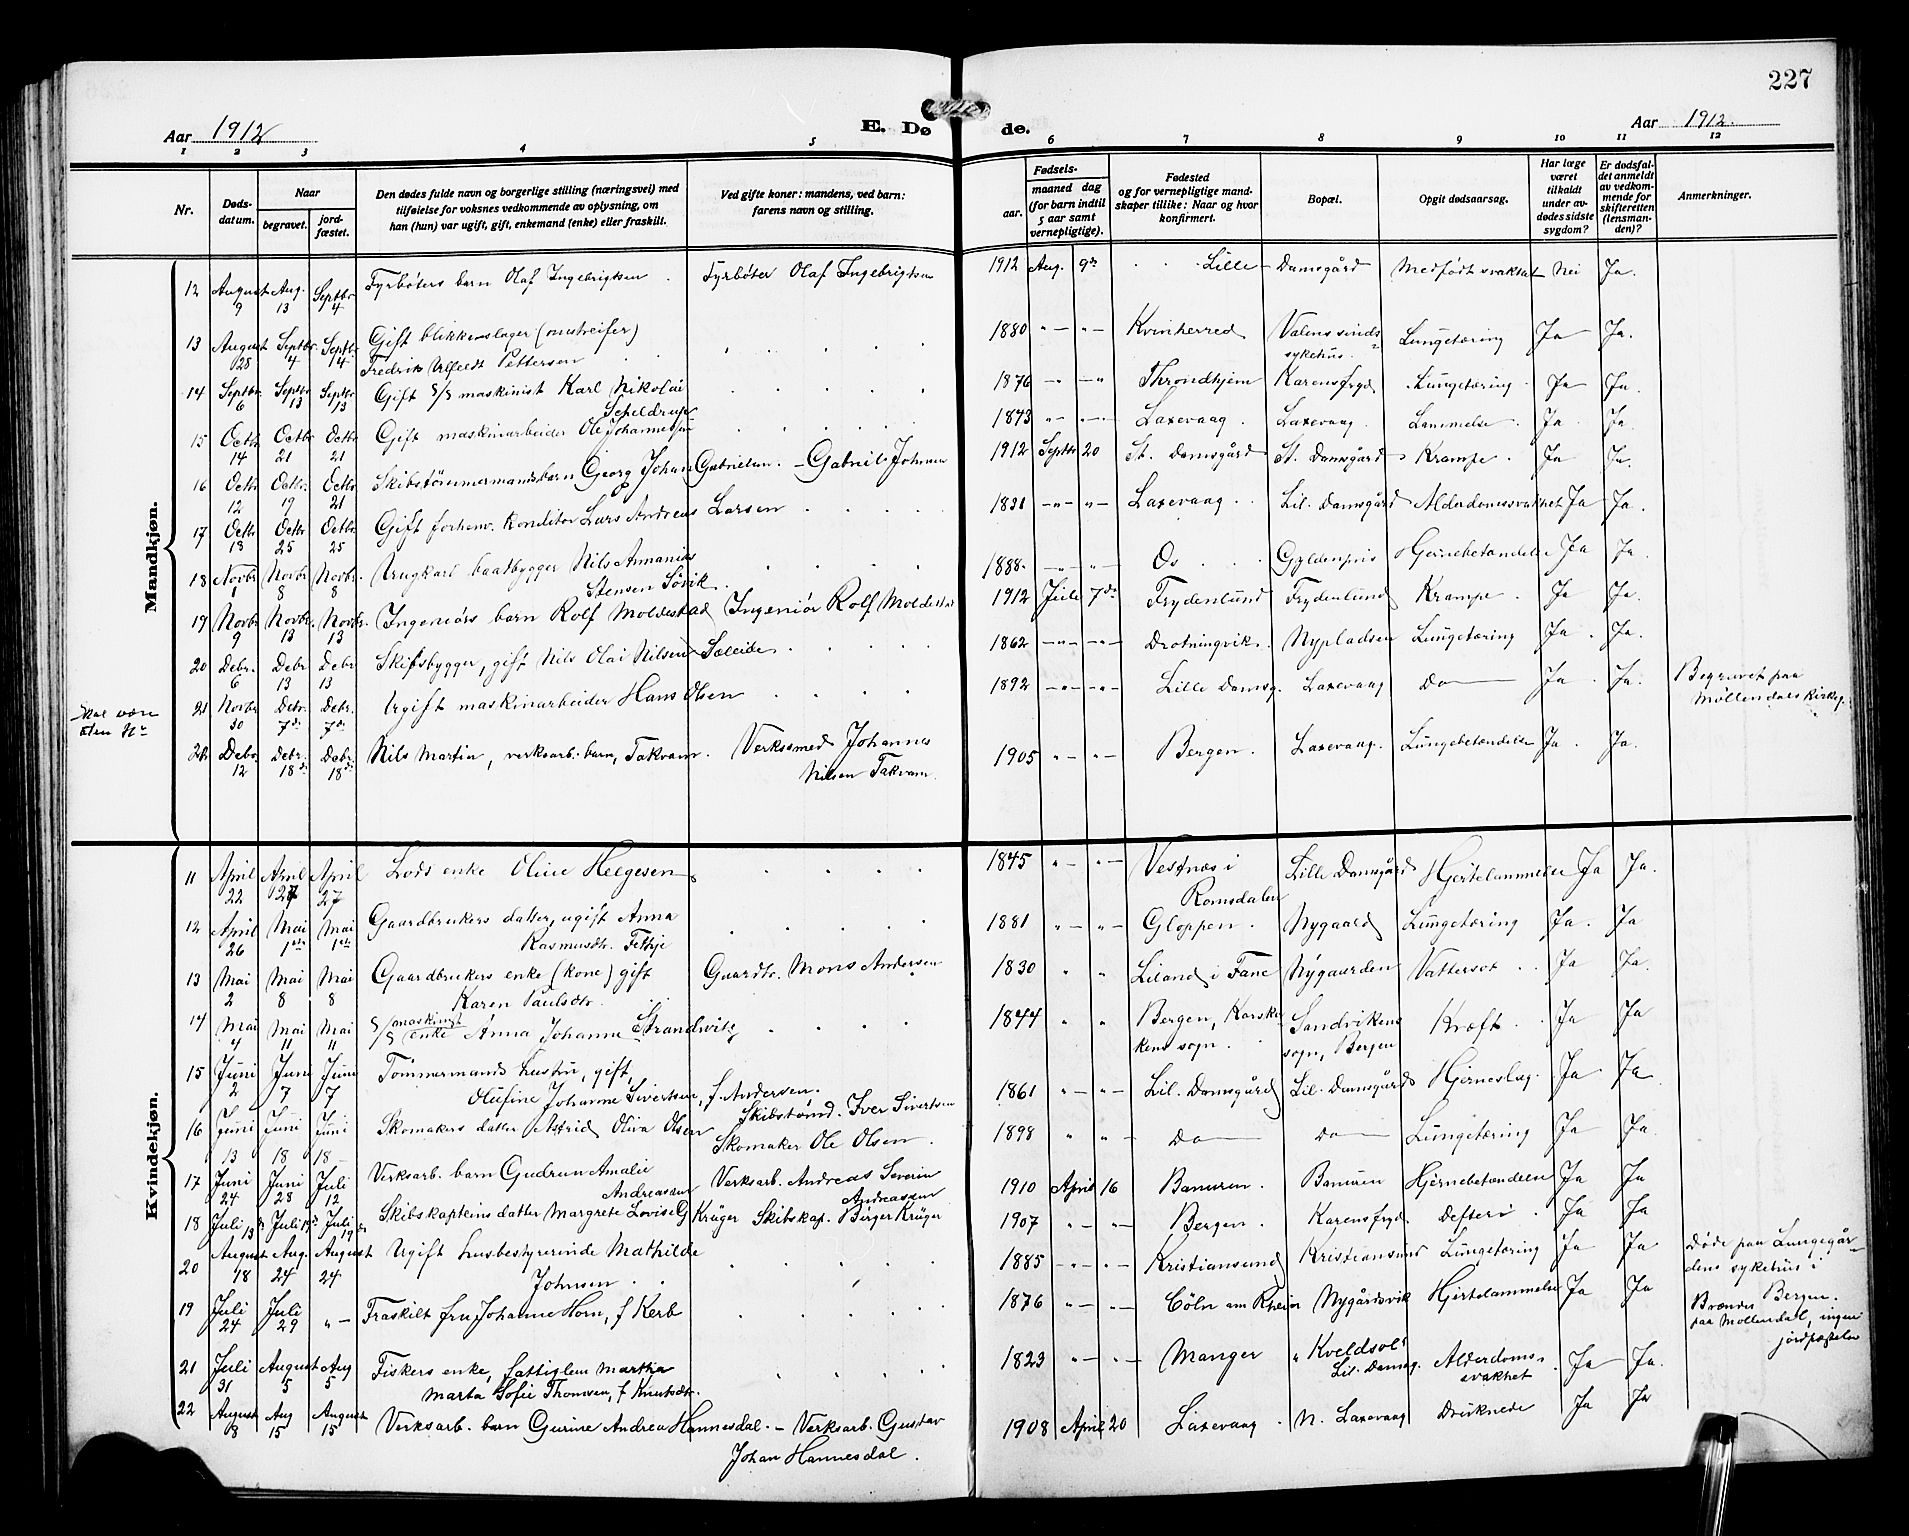 227
Aar 1912 E. Dø de. Aar 1912.
1 2 3 4 5 6 7 8 9 10 11 12
Nr. Døds-datum. Naar begravet. jord-fæstet. Den dødes fulde navn og borgerlige stilling (næringsvei) med tilføielse for voksnes vedkommende av oplysning, om han (hun) var ugift, gift, enkemand (enke) eller fraskilt. Ved gifte koner: mandens, ved barn: farens navn og stilling. Fødsels- aar. maaned dag (for barn indtil 5 aar samt vernepligtige). Fødested og for vernepligtige mandskaper tillike: Naar og hvor konfirmert. Bopæl. Opgit dødsaarsag. Har læge været tilkaldt under avdødes sidste sygdom? Er dødsfaldet anmeldt av vedkommende for skifteretten (lensmanden)? Anmerkninger.
Mandkjøn.
12 August 9 Aug. 13 Septbr 4 Fyrbøters barn Olaf Ingebrigtsen Fyrbøter Olaf Ingebrigtsen 1912 Aug. 9de Lille Damsgård Medfødt svakhet Nei Ja.
13 August 28 Septbr. 4 Septbr. 4 Gift blikkenslager (omstreifer) Fredrik Ulfeldt Pettersen 1880 " — " — Kvinherred Valens sinds-sykehus. Lungetæring Ja Ja.
14 Septbr. 6 Septbr 13 Septbr 13 Gift S/S maskinist Karl Nikolai Scheldrup 1876 — " — " Throndhjem Karensfryd Lungetæring Ja Ja.
15 Octbr 14 Octbr 21 Octbr 21 Gift maskinarbeider Ole Johannesen 1873 Laxevaag. Laxevaag. Lammelse Ja Ja.
16 Octbr 12 Octbr. 17 Octbr 21 Skibstømmermandsbarn Georg Johan Gabrielsen. — Gabriel Johnsen 1912 Septbr 20 St. Damsgård St. Damsgård Krampe. Ja Ja.
17 Octbr 18 Octbr 25 Octbr. 25 Gift forhenv. Konditor Lars Andreas Larsen 1831 — " — " — Laxevaag Lil. Damsgård Alderdomssvakhet Ja Ja.
18 Novbr 1 Novbr 8 Novbr. 8 Ungkarl baatbygger Nils Stensen Søvik 1888 — " — " — Os Gyldenpris Hjernebetændelse Ja Ja.
19 Novbr 9 Novbr. 13 Novbr. 13 Ingeniørs barn Rolf Moldestad Ingeniør Rolf Moldestad 1912 Juli 7de Frydenlund Frydenlund Krampe. Ja Ja.
20 Debr. 6 Debr 13 Debr 13 Skibsbygger, gift Nils Olai Nilsen Søleide 1862 — " — " — Drotningvik. Nypladsen Lungetæring Ja. Ja.
21 Novbr 30 Debr. 7de Debr. 7de Ugift maskinarbeider Hans Olsen 1892 — " — " — Lille Damsg. Laxevaag Do — Ja Ja. Begravet paa Møllendals kirkeg.
Skal være
22 Debr 12 Debr. 18de Debr. 18de Nils Martin, verksarb. barn, Takvam. Verksmed Johannes Nilsen Takvam 1905 " — " — Bergen. Laxevaag. Lungebetændelse Ja. Ja.
Kvindekjøn.
11 April 22 April 27 April 27 Lods enke Oline Helgesen 1845 " — " — Vestnæs i Romsdalen Lille Damsgård Hjertelammelse Ja Ja.
12 April 26 Mai 1ste Mai 1ste Gaardbrukers datter, ugift Anna Rasmusdtr. Fethje 1881 " — " — Gloppen. Nygaard Lungetæring Ja. Ja
13 Mai 2 Mai 8 Mai 8 Gaardbrukers enke (kone) gift Karen Paulsdtr. Gaardbr. Mons Andersen 1830 " " Liland i Fane Nygaarden Vattersot Ja Ja.
14 Mai 4 Mai 11 Mai 11 S/S maskinist enke Anna Johanne Strandwitz 1844 " " Bergen, Korskirkens sogn. Sandvikens sogn, Bergen Kræft. Ja Ja
15 Juni 2 Juni 7 Juni 7 Tømmermands hustru, gift, Olufine Johanne Sivertsen, f. Andersen. Skibstømd. Iver Sivertsen 1861 " — " — Lil. Damsgård Lil. Damsgård Hjerneslag. Ja Ja.
16 Juni 13 Juni 18 Juni 18 Skomakers datter Astrid Oliva Olsen Skomaker Ole Olsen. 1898 " " — Do — Do — Lungetæring Ja Ja.
17 Juni 24 Juni 28 Juli 12 Verksarb. barn Gudrun Amalie Andreassen Verksarb. Andreas Severin Andreassen 1910 April 16 Banuren Banuen Hjernebetændelse Ja Ja
18 Juli 13 Juli Juli 19de Skibskapteins datter Margrete Lovise G Krüger Skibskap. Birger Krüger 1907 " — " — Bergen. Karensfryd. Defteri. Ja Ja
20 August 18 Aug. 24 August 24 Ugift husbestyrerinde Mathilde Johnsen 1885 — " — " — Kristiansund Kristiansund Lungetæring Ja Ja Døde paa Lungegårdens sykehus i Bergen.
19 Juli 24 Juli 29 " — Fraskilt fru Johanne Horn, f Kerb 1876 — " — " — Cöln am Rhein Nygårdsvik Hjertelammelse Ja Ja Brændes paa Møllendal, ingen jordpaakastelse
21 Juli 31 August 5 Aug 5 Fiskers enke, fattiglem Martha Marta Sofie Thomsen, f Knutsdtr. 1823 — " — " — Manger " Kveldsol" Lil. Damsg. Alderdoms-svakhet Ja Ja.
22 August 8 Aug 15 August 15 Verksarb. barn Gurine Andrea Hannesdal. — Verksarb. Gustav Johan Hannesdal. 1908 April 20 Laxevaag N. Laxevaag Druknede Ja Ja